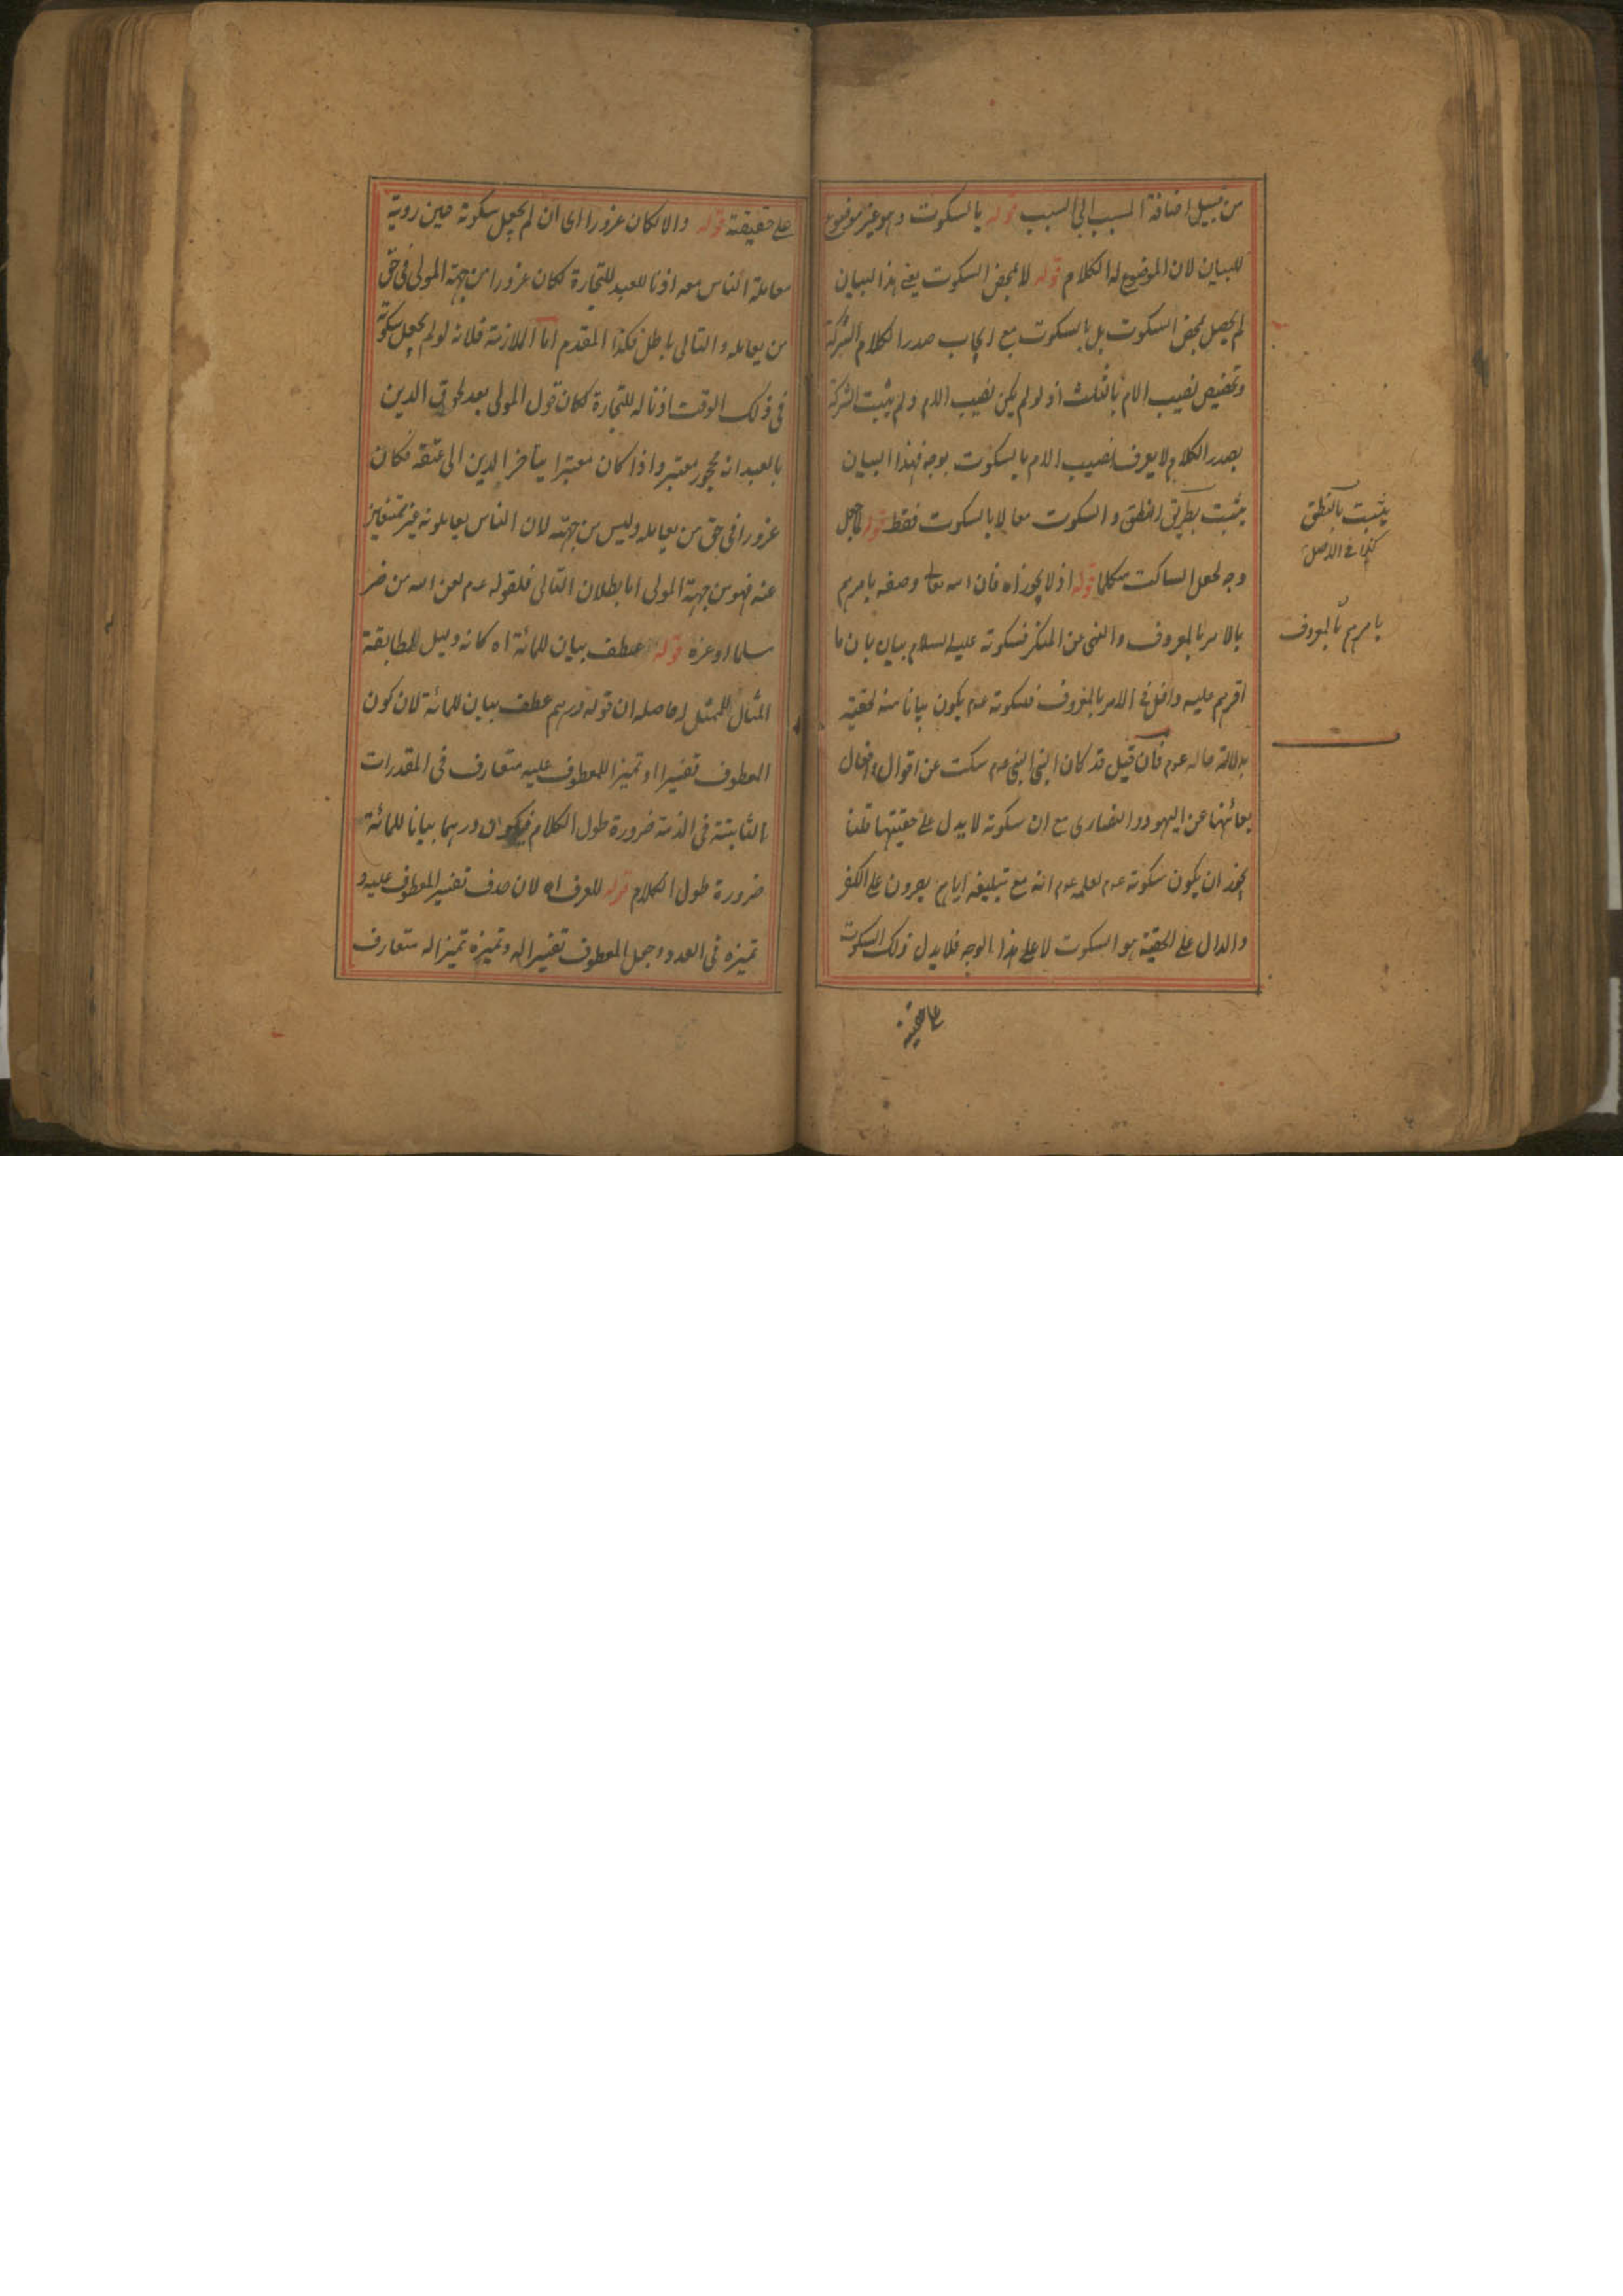 من قبيل اضافة المسبب الى السبب قوله بالسكوت وهو غير موضوع
للبيان لان الموضوع له الكلام قوله لا بمحض السكوت يعني هذا البيان
لم يحصل بمحض السكوت بل بالسكوت مع ايجاب صدر الكلام الشركة
وتخصيص نصيب الام بالثلث اذ لو لم يكن نصيب الام ولم يثبت الشركة
بصدر الكلام لا يعرف نصيب الام بالسكوت بوجه فهذا البيان
يثبت بطريق النطق والسكوت معا لا بالسكوت فقط قوله
وجه لجعل الساكت متكلما قوله اذ لا يجوز اه فان الله تعالى وصفه يامرهم
بالامر بالمعروف والنهي عن المنكر فسكوته عليه السلام بيان بان ما
اقرهم عليه داخل في الامر بالمعروف فسكوته عم يكون بيانا منه لحقيته
بدلالة حاله عم فان قيل قد كان النبي عم سكت عن اقوال وافعال
يعاينها عن اليهود والنصارى مع ان سكوته لا يدل على حقيتها قلنا
يجوز ان يكون سكوته عم لعلمه عم انه مع تبليغه اياهم يصرون على الكفر
والدال على الحقية هو السكوت لا على هذا الوجه فلا يدل ذلك السكوت
على حقيته
يثبت بالنطق
كذا في الاصل
يامرهم بالمعروف
على حقيقته قوله والا لكان غرورا اى ان لم يجعل سكوته حين روية
معاملة الناس معه اذنا للعبد للتجارة لكان غرورا من جهة المولى في حق
من يعامله والتالى باطل فكذا المقدم اما الملازمة فلانه لو لم يجعل سكوته
في ذلك الوقت اذنا له للتجارة لكان قول المولى بعد لحوق الدين
بالعبد انه محجور معتبر واذا كان معتبرا يتاخر الدين الى عتقه فكان
غرورا في حق من يعامله وليس من جهته لان الناس يعاملونه غير
عنه فهو من جهة المولى اما بطلان التالى فلقوله عم لعن الله من ضر
مسلما او غره قوله عطف بيان للمائة اه كانه دليل لمطابقة
المثال للممثل له حاصله ان قوله درهم عطف بيان للمائة لان كون
المعطوف تفسيرا او تميزا للمعطوف عليه متعارف في المقدرات
الثابتة في الذمة ضرورة طول الكلام فيكون درهما بيانا للمائة
ضرورة طول الكلام قوله للعرف اه لان حذف تفسير المعطوف عليه و
تميزه في العدد وجعل المعطوف تفسيرا له وتميزه تميزا له متعارف